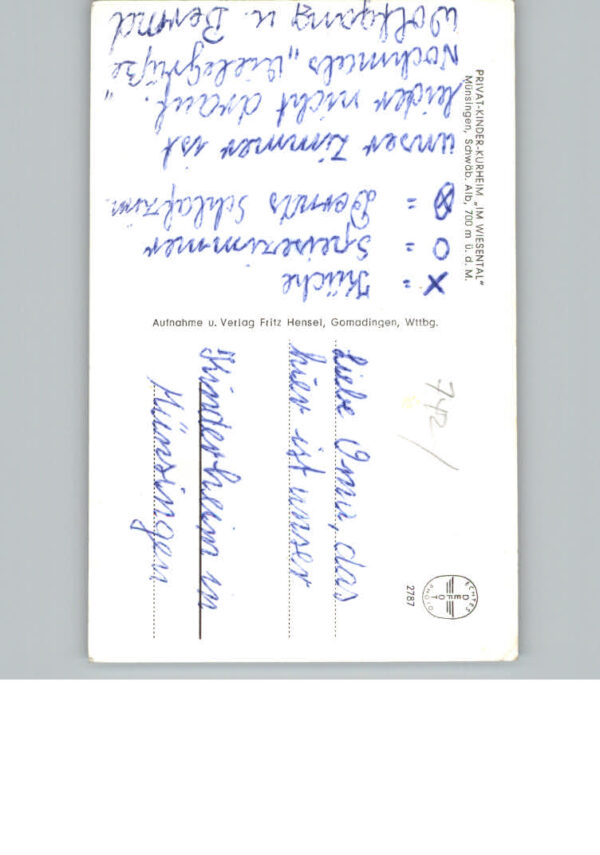 PRIVAT-KINDER-KURHEIM „IM WIESENTAL"
Münsingen, Schwäb. Alb, 700 m ü. d. M.
X = Küche
O = Speisezimmer
⊗ = Bernds Schlafzim.
unser Zimmer ist
leider nicht drauf.
Nochmals „Vielegrüße"
Wolfgang u. Bernd
Aufnahme u. Verlag Fritz Hensel, Gomadingen, Wttbg.
742/
Liebe Oma, das
hier ist unser
Kinderheim in
Münsingen
ECHTES
DEFOT
PHOTO
2787